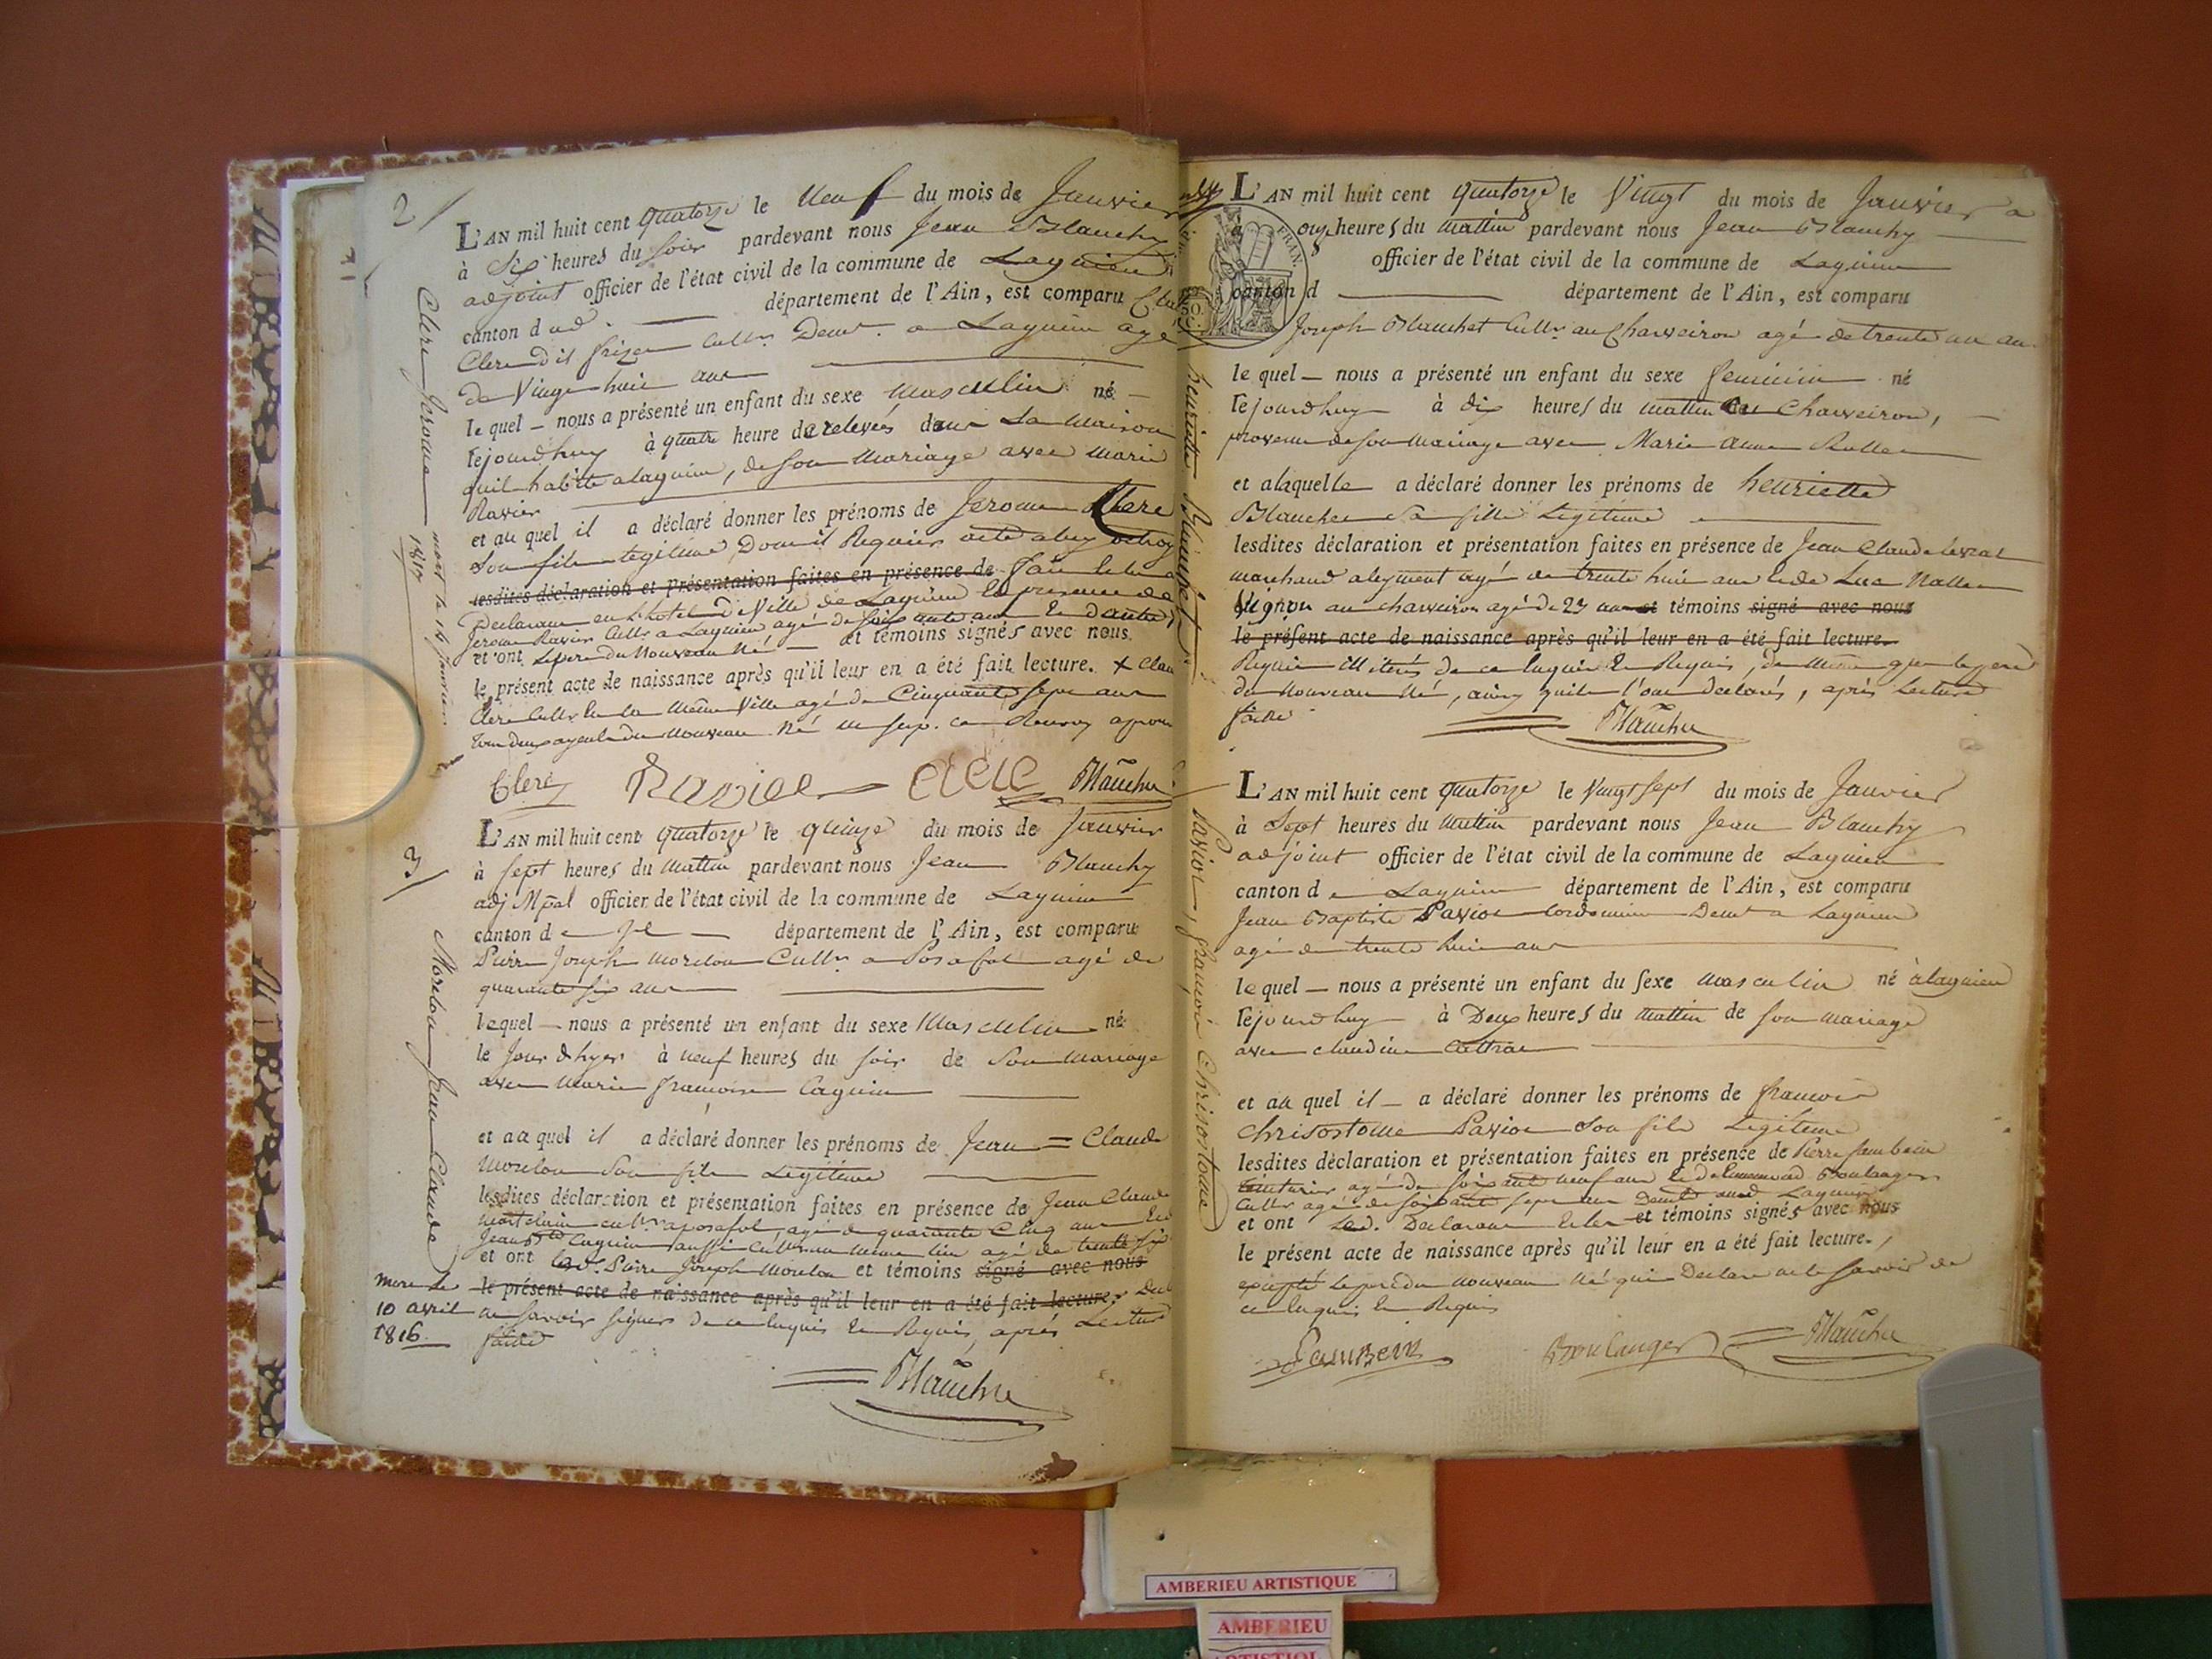 2/
L'AN mil huit cent quatorze le neuf du mois de Janvier
à six heures du soir pardevant nous Jean Blanchy
adjoint officier de l'état civil de la commune de Lagnieu
canton dud. département de l'Ain, est comparu
Clerc dit frizon Cultr Demt a Lagnieu agé
de Vingt huit ans
le quel nous a présenté un enfant du sexe masculin né
cejourdhuy à quatre heure de relevés dans la maison
quil habite a lagnieu, de son mariage avec marie
Ravier
et au quel il a déclaré donner les prénoms de Jerome Clerc
son fils legitime, Dont il Requiert acte
lesdites déclaration et présentation faites en présence de
Declarant en l'hotel De Ville de Lagnieu En presence de
Jerome Ravier Cultr a Lagnieu agé de soixante ans
et ont le pere du Nouveau Né et témoins signés avec nous
le présent acte de naissance après qu'il leur en a été fait lecture. +
Clerc Cultr En la même Ville agé de Cinquante sept ans
tous deux ayeuls du Nouveau Né
Clerc Ravier clerc Blanchy
Clerc Jerome
mort le 14 janvier
1817
3/
L'AN mil huit cent quatorze le quinze du mois de Janvier
à sept heures du mattin pardevant nous Jean Blanchy
adj Mpal officier de l'état civil de la commune de Lagnieu
canton de département de l'Ain, est comparu
Pierre Joseph Morelon Cultr a Posafol agé de
quarante six ans
lequel nous a présenté un enfant du sexe Masculin né
le Jour dhyer à neuf heures du soir de Son Mariage
avec Marie francoise Caguin
et au quel il a déclaré donner les prénoms de Jean = Claude
Morelon Son fils Legitime
lesdites déclaration et présentation faites en présence de Jean Claude
cultr a posafol agé de quarante Cinq ans
Jean Bte Caguin aussi Cultr au meme lieu agé de trente six
et ont led. Pierre Joseph Morelon et témoins signé avec nous
le présent acte de naissance après qu'il leur en a été fait lecture.
ne savoir signer de ce Enquis Et Requis, après Lecture
faitte
Blanchy
Morelon Jean Claude
mort le
10 avril
1816
L'AN mil huit cent quatorze le Vingt du mois de Janvier
à onze heures du mattin pardevant nous Jean Blanchy
officier de l'état civil de la commune de Lagnieu
canton d département de l'Ain, est comparu
Joseph Blanchet Cultr au Charveiron agé de trente un an
le quel nous a présenté un enfant du sexe feminin né
cejourdhuy à dix heures du mattin au Charveiron,
provenu de son mariage avec Marie anne
et a laquelle a déclaré donner les prénoms de henriette
Blanchet Sa fille Legitime
lesdites déclaration et présentation faites en présence de Jean Claude
marchand a leyment agé de trente huit ans Et de Luc
Vignon au charveiron agé de 23 ans et témoins signé avec nous
le présent acte de naissance après qu'il leur en a été fait lecture.
Requis illiterés de ce Enquis Et Requis, de même que le pere
du Nouveau Né, ainsy quils l'ont declarés, après Lecture
faitte
Blanchy
henriette Blanchet
L'AN mil huit cent quatorze le Vingt sept du mois de Janvier
à Sept heures du Mattin pardevant nous Jean Blanchy
adjoint officier de l'état civil de la commune de Lagnieu
canton de Lagnieu département de l'Ain, est comparu
Jean Baptiste Paviot Cordonnier Demt a Lagnieu
agé de trente huit ans
le quel nous a présenté un enfant du sexe masculin né à lagnieu
cejourdhuy à Deux heures du Mattin de son mariage
avec claudine
et au quel il a déclaré donner les prénoms de francois
Chrisostome Paviot Son fils Legitime
lesdites déclaration et présentation faites en présence de Pierre Jambein
agé de soixante neuf ans Boulanger
Cultr agé de soixante sept ans Lagnieu
et ont Led. Declarant et témoins signés avec nous
le présent acte de naissance après qu'il leur en a été fait lecture.,
excepté le pere du nouveau Né qui Declare ne le savoir de
ce Enquis Et Requis
Jambein Boulanger Blanchy
Paviot, francois Chrisostome
FRAN.
AMBERIEU ARTISTIQUE
AMBERIEU
ARTISTIQUE